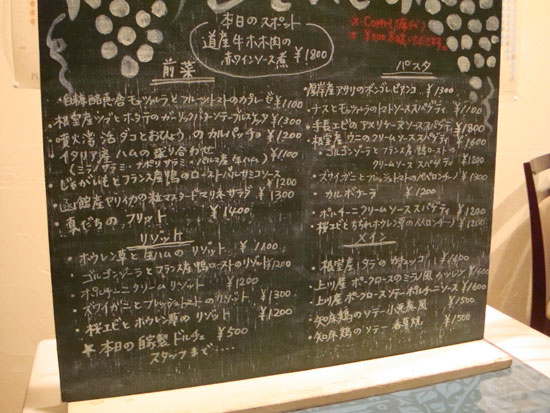 本日のスポット
道産牛ホホ肉の
赤ワインソース煮 ¥1800
前菜
・白糠酪恵舎モッツァレラとフルーツトマトのカプレーゼ ¥1100
・根室産ツブとホタテのガーリックバターテーブルスタイル ¥1300
・噴火湾活ダコとおひょうのカルパッチョ ¥1200
・イタリア産ハムの盛り合わせ ¥1100
・じゃがいもとフランス産鴨のローストバルサミコソース ¥1200
・函館産ヤリイカの粒マスタードマリネサラダ ¥1300
・真だちのフリット ¥1400
リゾット
・ホウレン草と生ハムのリゾット ¥1100
・ゴルゴンゾーラとフランス産鴨ローストのリゾット ¥1200
・ポルチーニクリームリゾット ¥1200
・ズワイガニとフレッシュトマトのリゾット ¥1300
・桜エビとホウレン草のリゾット ¥1200
★本日の自家製ドルチェ ¥500
スタッフまで....
パスタ
・厚岸産アサリのボンゴレビアンコ ¥1300
・ナスとモッツァレラのトマトソーススパゲティ ¥1100
・手長エビのアメリケーヌソーススパゲティ ¥1800
・根室産ウニのクリームスパゲティ ¥1600
・ゴルゴンゾーラとフランス産鴨ローストの
クリームソーススパゲティ ¥1200
・ズワイガニとフレッシュトマトのペペロンチーノ ¥1300
・カルボナーラ ¥1200
・ポルチーニクリームソーススパゲティ ¥1200
・桜エビとちぢれホウレン草のペペロンチーノ ¥1100
メイン
・根室産 ¥1400
・上川産ポークロースのミラノ風カツレツ ¥1600
・上川産ポークロースソテーポルチーニソース ¥1600
・知床鶏のソテー小悪魔風 ¥1500
・知床鶏のソテー香草焼 ¥1500